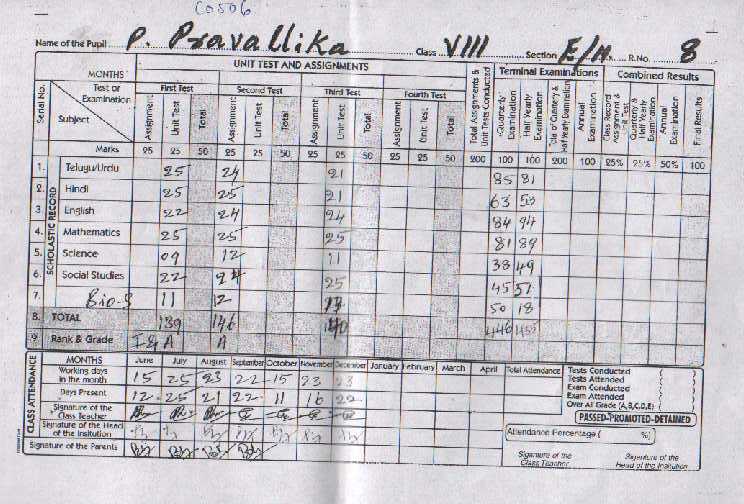 C0506
Name of the Pupil P. Pravallika Class VIII Section E/M R.No. 8
MONTHS UNIT TEST AND ASSIGNMENTS Total Assignments & Unit Tests Conducted Terminal Examinations Combined Results
Serial No. Test or Examination Subject First Test Second Test Third Test Fourth Test
Assignment Unit Test Total Assignment Unit Test Total Assignment Unit Test Total Assignment Unit Test Total Quarterly Examination Half Yearly Examination Total of Quartery & Half Yearly Examination Annual Examination Class Record Assignment & Unit Test Quarterly & Half Yearly Examination Annual Examination Final Results
Marks 25 25 50 25 25 50 25 25 50 25 25 50 200 100 100 200 100 25% 25% 50% 100
SCHOLASTIC RECORD
1. Telugu/Urdu 25 24 21 85 81
2. Hindi 25 25 21 63 50
3. English 22 24 24 84 94
4. Mathematics 25 25 25 81 89
5. Science 09 12 11 38 49
6. Social Studies 22 24 25 45 57
7. Bio-S 11 12 13 50 18
8. TOTAL 139 146 140 446
9. Rank & Grade I & A A
CLASS ATTENDANCE
MONTHS June July August September October November December January February March April Total Attendance
Working days in the month 15 25 23 22 15 23 23
Days Present 12 25 21 22 11 16 22
Signature of the Class Teacher
Signature of the Head of the Insitution
Signature of the Parents
Tests Conducted ( )
Tests Attended ( )
Exam Conducted ( )
Exam Attended ( )
Over All Grade (A,B,C,D,E) ( )
PASSED-PROMOTED-DETAINED
Attendance Percentage ( %)
Signature of the Class Teacher
Signature of the Head of the Insitution